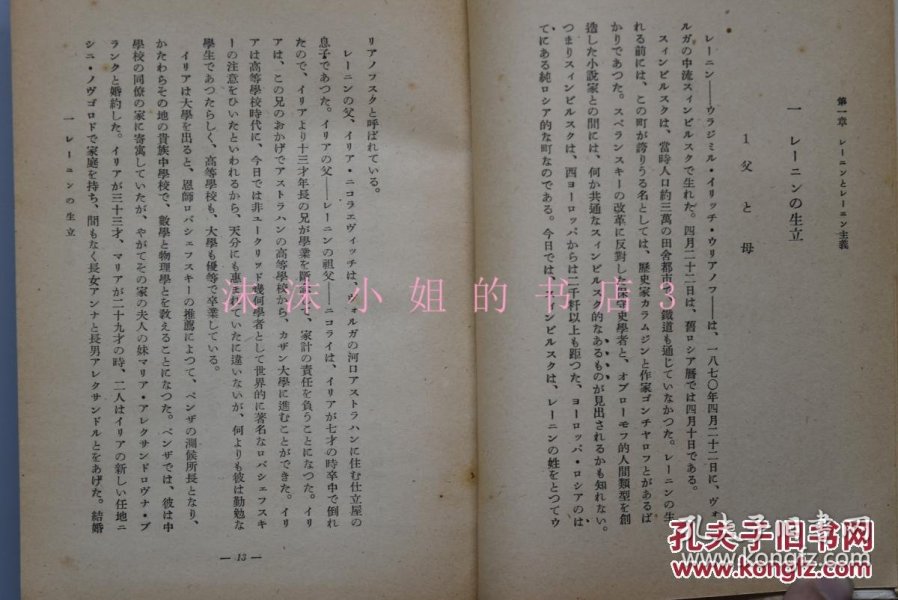 第一章 レーニンとレーニン主義
一 レーニンの生立
1 父と母
レーニン――ウラジミル・イリッチ・ウリアノフ――は、一八七〇年四月二十二日に、ヴォ
ルガの中流スィンビルスクで生れた。四月二十二日は、舊ロシア曆では四月十日である。
スィンビルスクは、當時人口約三萬の田舍都市で、鐵道も通じていなかつた。レーニンの生
れる前には、この町が誇りうる名としては、歷史家カラムジンと作家ゴンチャロフとがあるば
かりであつた。スペランスキーの改革に反對した保守史學者と、オブローモフ的人間類型を創
造した小說家との間には、何か共通なスィンビルスク的なあるものが見出されるかも知れない。
つまりスィンビルスクは、西ヨーロッパからは二千粁以上も距つた、ヨーロッパ・ロシアのは
てにある純ロシア的な町なのである。今日では、スィンビルスクは、レーニンの姓をとつてウ
リアノフスクと呼ばれている。
レーニンの父、イリア・ニコラエヴィッチは、ヴォルガの河口アストラハンに住む仕立屋の
息子であつた。イリアの父――レーニンの祖父――ニコライは、イリアが七才の時卒中で倒れ
たので、イリアより十三才年長の兄が學業を斷念して、家計の責任を負うことになつた。イリ
アは、この兄のおかげでアストラハンの高等學校から、カザン大學に進むことができた。イリ
アは高等學校時代に、今日では非ユークリッド幾何學者として世界的に著名なロバシェフスキ
ーの注意をひいたといわれるから、天分にも惠まれていたに違いないが、何よりも彼は勤勉な
學生であつたらしく、高等學校も、大學も優等で卒業している。
イリアは大學を出ると、恩師ロバシェフスキーの推薦によつて、ペンザの測候所長となり、
かたわらその地の貴族中學校で、數學と物理學とを敎えることになつた。ペンザでは、彼は中
學校の同僚の家に寄寓していたが、やがてその家の夫人の妹マリア・アレクサンドロヴナ・ブ
ランクと婚約した。イリアが三十三才、マリアが二十九才の時、二人はイリアの新しい任地ニ
シニ・ノヴゴロドで家庭を持ち、間もなく長女アンナと長男アレクサンドルとをあげた。結婚
一 レーニンの生立
― 13 ―
沫沫小姐的书店3
孔夫子旧书网
孔夫子旧书网
www.kongfz.com